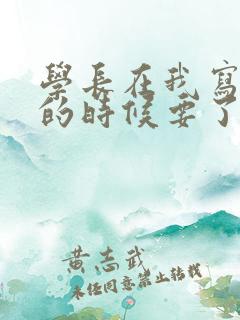 學長在我寫
的時候要了
黃志武
未經同意禁止轉載